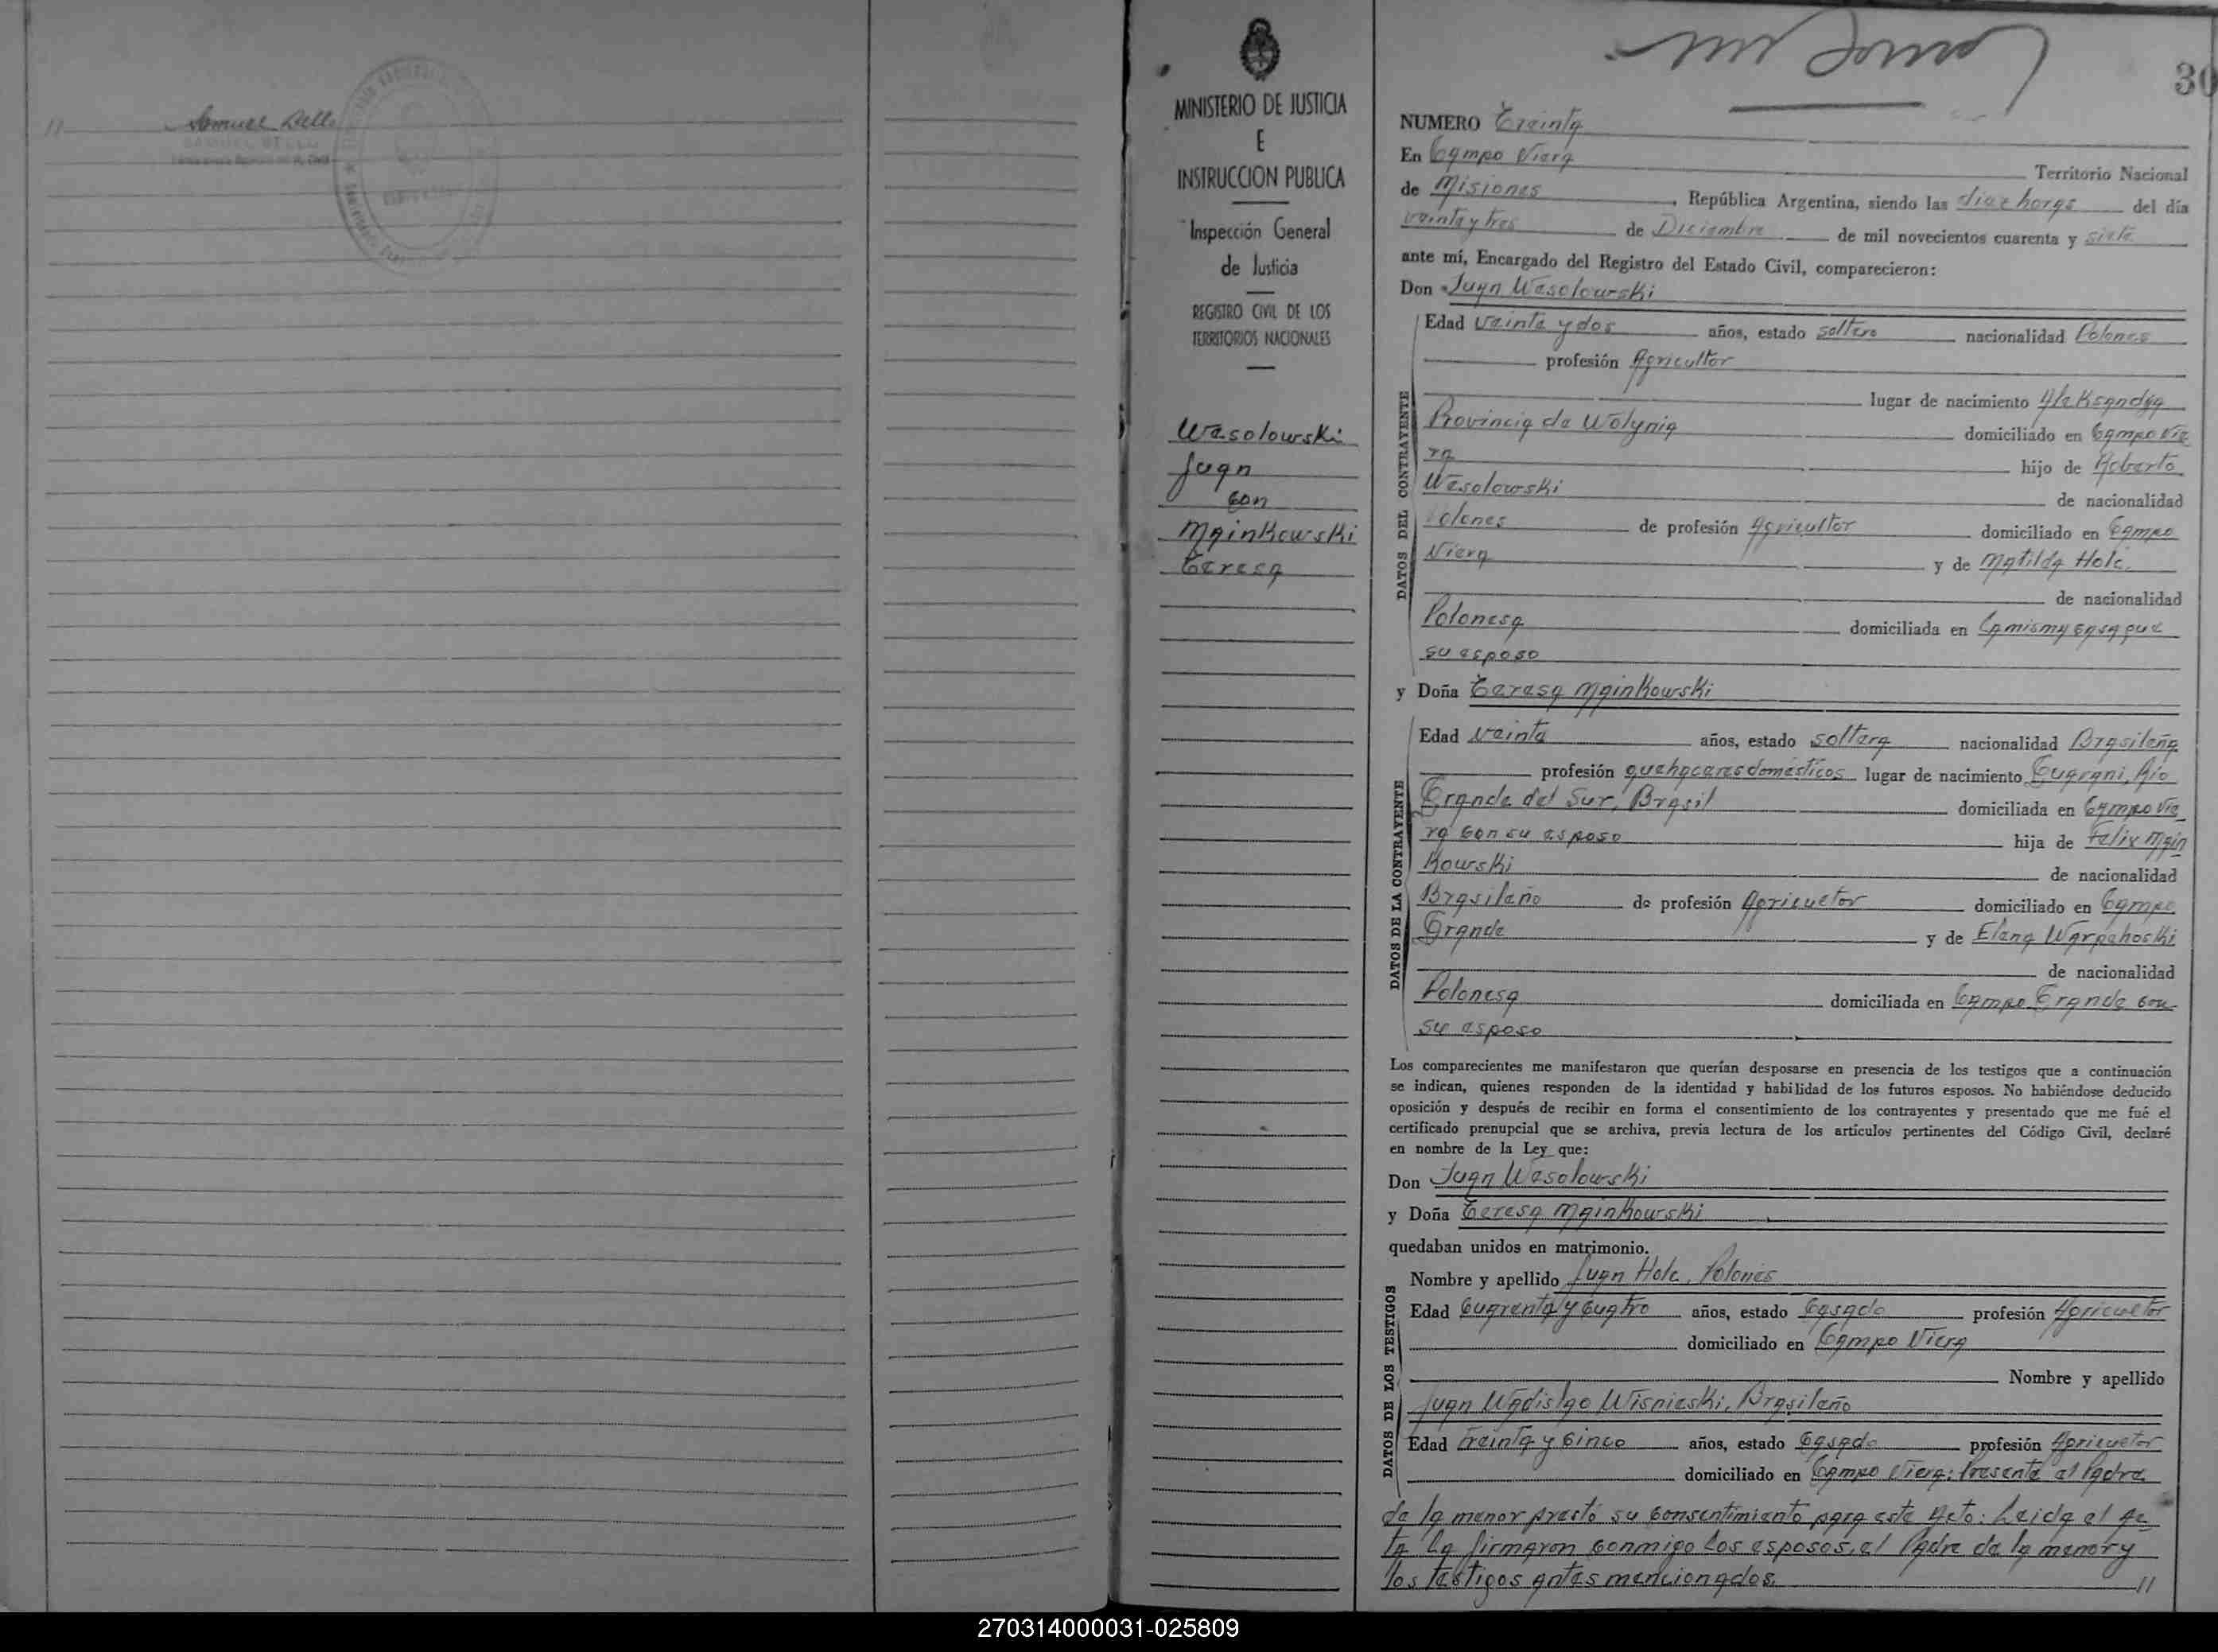 11
Samuel Bello
SAMUEL BELLO
MINISTERIO DE JUSTICIA
E
INSTRUCCION PUBLICA
Inspección General
de Justicia
REGISTRO CIVIL DE LOS
TERRITORIOS NACIONALES
Wesolowski
Juan
con
Mainkowski
Teresa
30
NUMERO Treinta
En Campo Viera Territorio Nacional
de Misiones, República Argentina, siendo las diez horas del día
veinte y tres de Diciembre de mil novecientos cuarenta y siete
ante mí, Encargado del Registro del Estado Civil, comparecieron:
Don Juan Wesolowski
DATOS DEL CONTRAYENTE
Edad veinte y dos años, estado soltero nacionalidad Polones
profesión Agricultor
lugar de nacimiento
Provincia de Wolynia domiciliado en Campo Vie
ra hijo de Roberto
Wesolowski de nacionalidad
Polones de profesión Agricultor domiciliado en Campo
Viera y de Matilda Holc.
de nacionalidad
Polonesa domiciliada en la misma casa que
su esposo
y Doña Teresa Mainkowski
DATOS DE LA CONTRAYENTE
Edad veinte años, estado soltera nacionalidad Brasileña
profesión quehaceres domésticos lugar de nacimiento Guarani, Rio
Grande del Sur, Brasil domiciliada en Campo Vie
ra con su esposo hija de Felix Main
Kowski de nacionalidad
Brasileño de profesión Agricultor domiciliado en Campo
Grande y de Elena Warpehoski
de nacionalidad
Polonesa domiciliada en Campo Grande con
su esposo
Los comparecientes me manifestaron que querían desposarse en presencia de los testigos que a continuación
se indican, quienes responden de la identidad y habilidad de los futuros esposos. No habiéndose deducido
oposición y después de recibir en forma el consentimiento de los contrayentes y presentado que me fué el
certificado prenupcial que se archiva, previa lectura de los artículos pertinentes del Código Civil, declaré
en nombre de la Ley que:
Don Juan Wesolowski
y Doña Teresa Mainkowski
quedaban unidos en matrimonio.
DATOS DE LOS TESTIGOS
Nombre y apellido Juan Holc, Polonés
Edad Cuarenta y cuatro años, estado Casado profesión Agricultor
domiciliado en Campo Viera
Nombre y apellido
Juan Wadislao Wisnieski, Brasileño
Edad treinta y cinco años, estado Casado profesión Agricultor
domiciliado en Campo Viera: Presente el Padre
de la menor prestó su consentimiento para este Acto: Leida el Ac
ta la firmaron conmigo los esposos, el Padre de la menor y
los testigos antes mencionados. 11
270314000031-025809